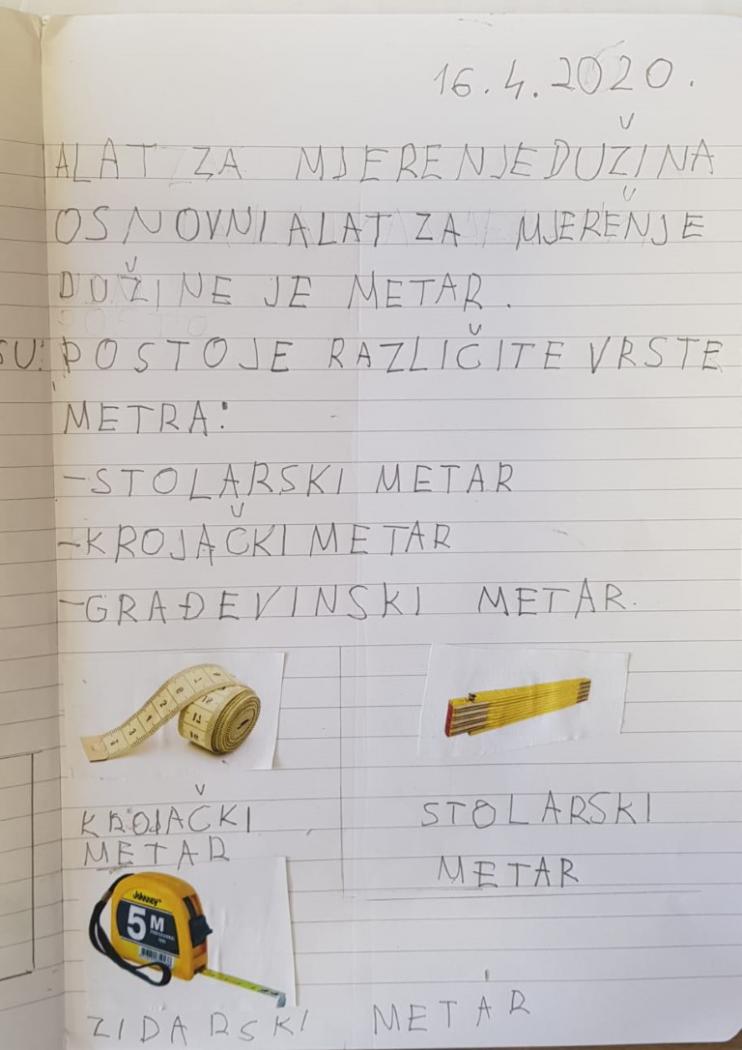 16.4.2020.
ALAT ZA MJERENJE DUŽINA
OSNOVNI ALAT ZA MJERENJE
DUŽINE JE METAR.
SU: POSTOJE RAZLIČITE VRSTE
METRA:
-STOLARSKI METAR
-KROJAČKI METAR
-GRAĐEVINSKI METAR.
KROJAČKI
METAR
STOLARSKI
METAR
Johnney
5M
ZIDARSKI METAR